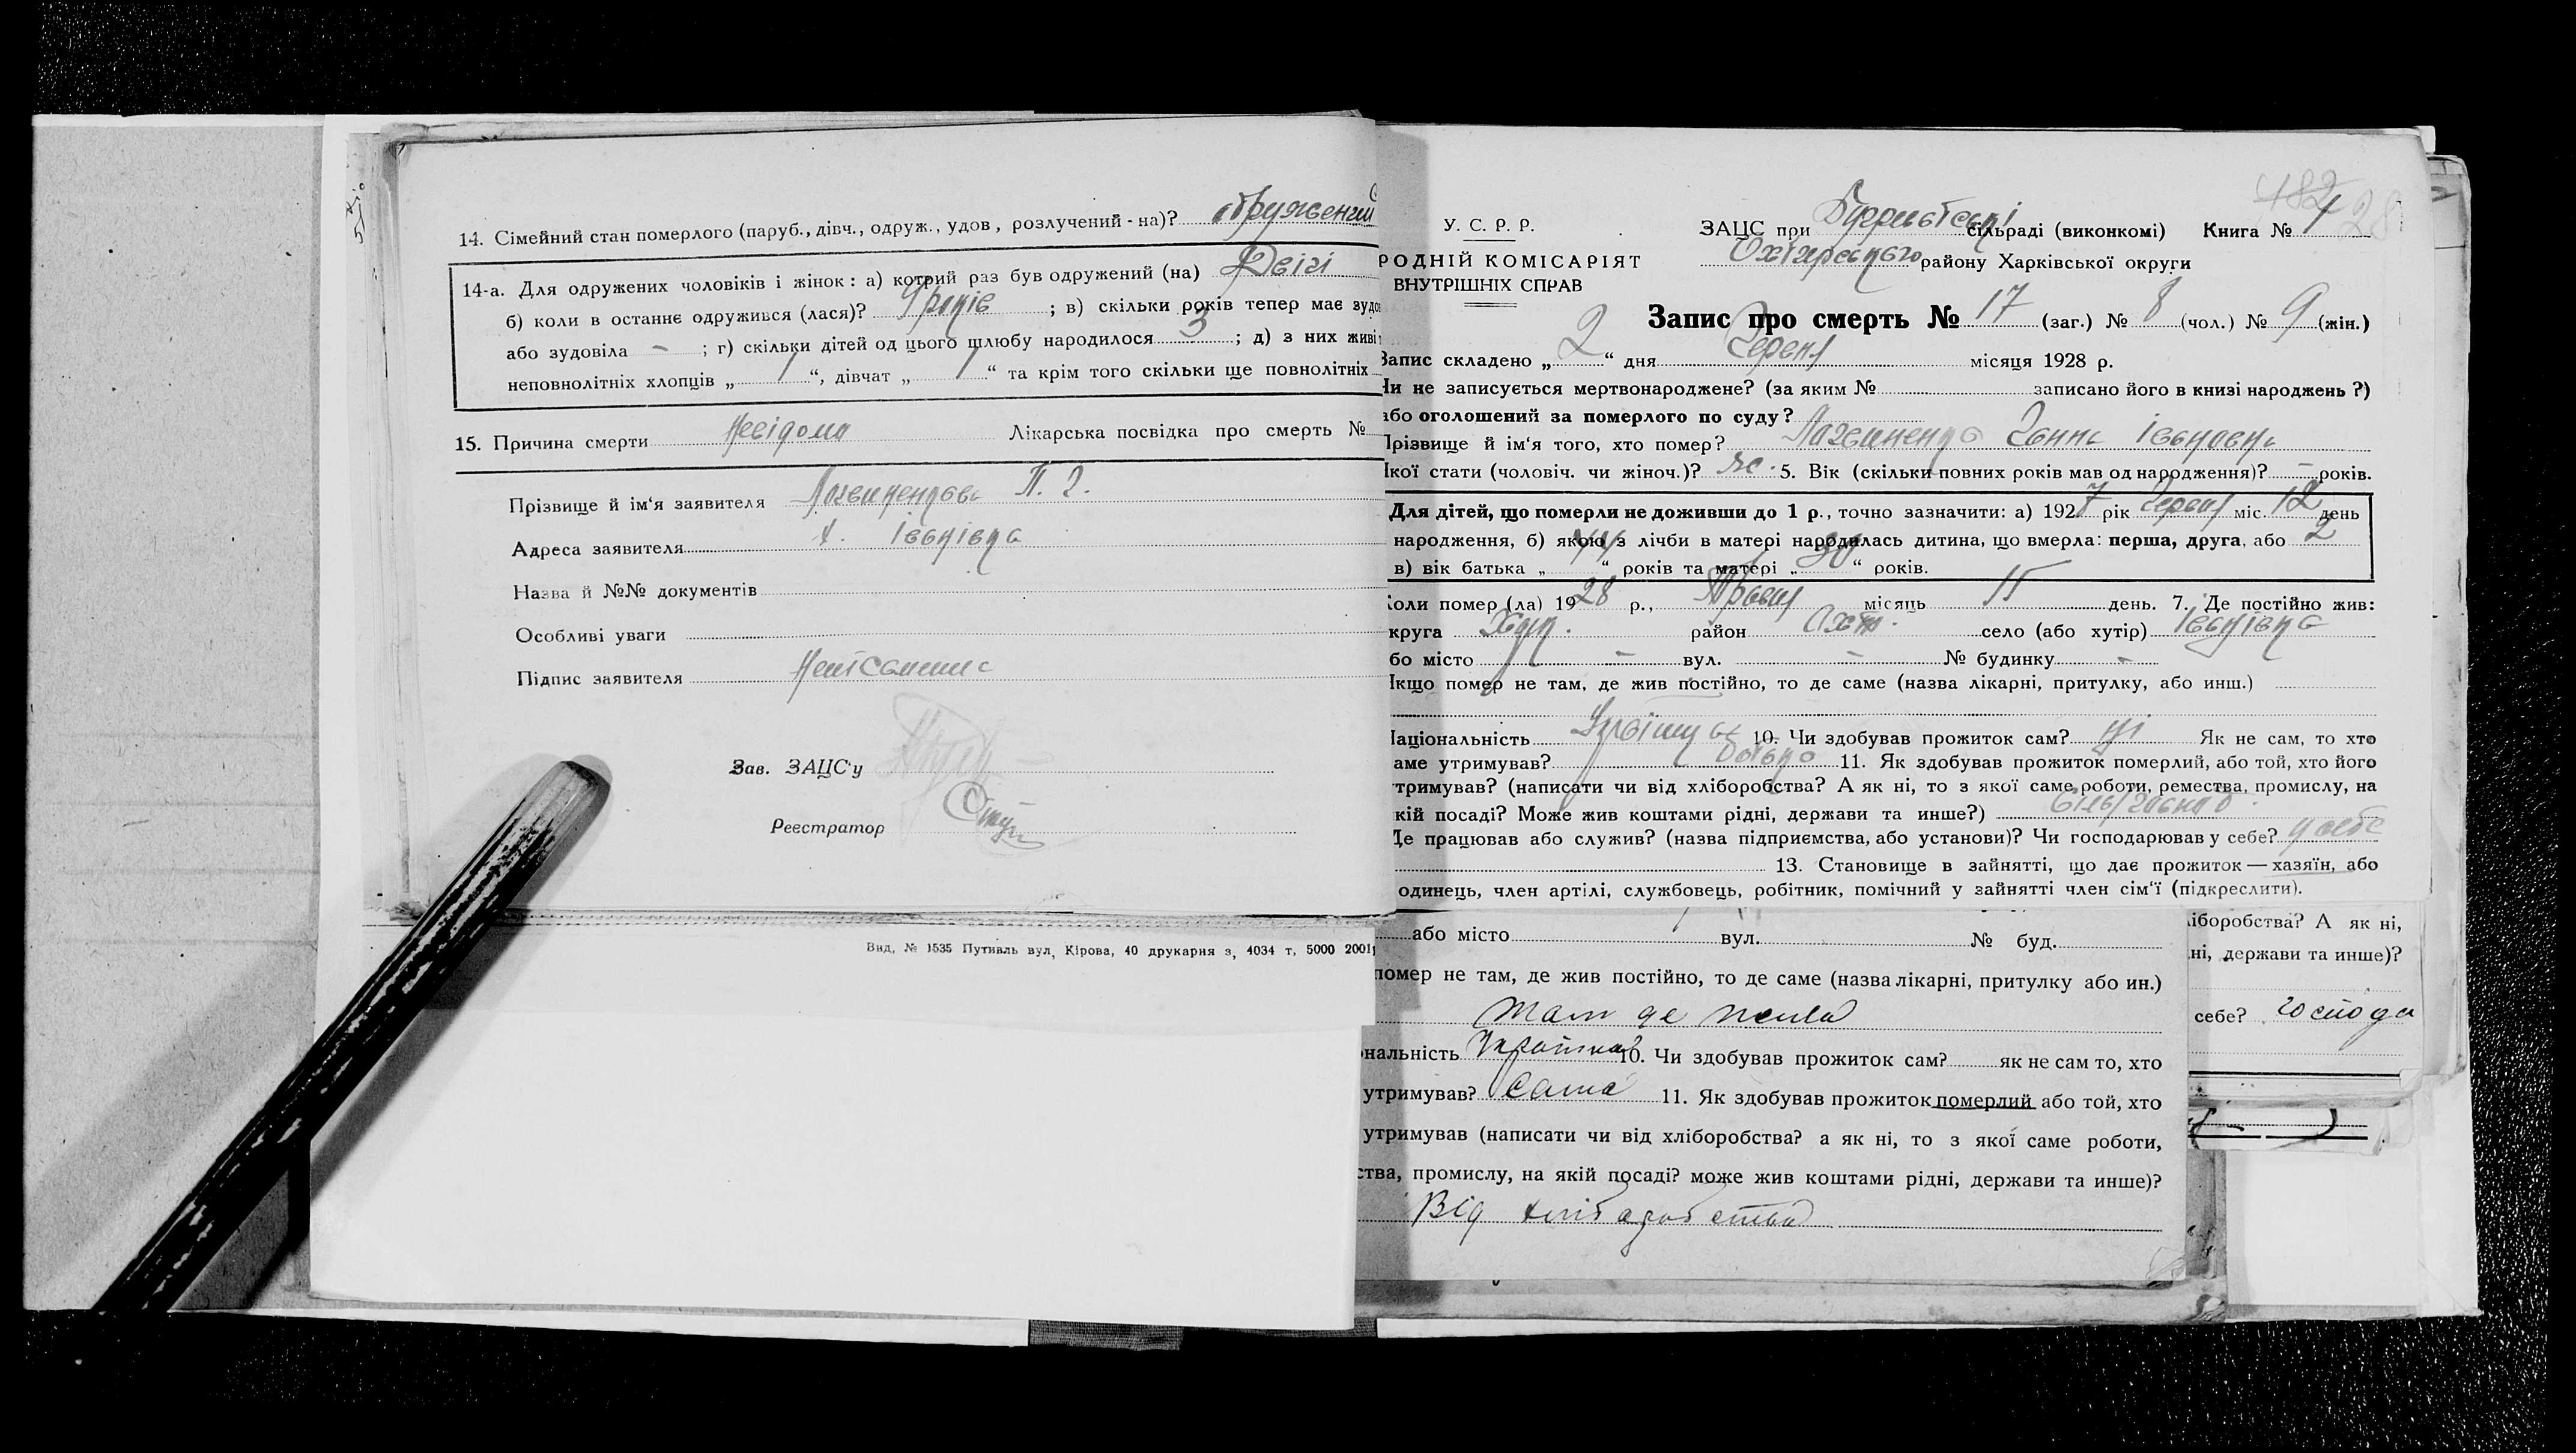 14. Сімейний стан померлого (паруб., дівч., одруж., удов, розлучений - на)?
14-а. Для одружених чоловіків і жінок: а) котрий раз був одружений (на) Двічі
б) коли в останнє одружився (лася)? 9 років ; в) скільки років тепер має зудо
або зудовіла - ; г) скільки дітей од цього шлюбу народилося 3 ; д) з них живі
неповнолітніх хлопців „ 1 “, дівчат „ 1 “ та крім того скільки ще повнолітніх
15. Причина смерти невідома Лікарська посвідка про смерть №
Прізвище й ім‘я заявителя П. І.
Адреса заявителя х. Іванівка
Назва й №№ документів
Особливі уваги
Підпис заявителя
Зав. ЗАЦС‘у
Реєстратор
Вид, № 1535 Путивль вул, Кірова, 40 друкарня з, 4034 т, 5000 2001
У. С. Р. Р.
РОДНІЙ КОМІСАРІЯТ
ВНУТРІШНІХ СПРАВ
482 28
ЗАЦС при сільраді (виконкомі) Книга № 1
Охтирського району Харківської округи
Запис про смерть № 17 (заг.) № 8 (чол.) № 9 (жін.)
Запис складено „ 2 “ дня Червня місяця 1928 р.
Чи не записується мертвонароджене? (за яким № записано його в книзі народжень ?)
або оголошений за померлого по суду?
Прізвище й ім‘я того, хто помер? Логвиненко Ганна Івановна
Якої стати (чоловіч. чи жіноч.)? ж. 5. Вік (скільки повних років мав од народження)? - років.
Для дітей, що померли не доживши до 1 р., точно зазначити: а) 1927 рік Червня міс. 12 день
народження, б) якою з лічби в матері народилась дитина, що вмерла: перша, друга, або 2
в) вік батька „ 44 “ років та матері „ 30 “ років.
Коли помер (ла) 1928 р., Травня місяць 15 день. 7. Де постійно жив:
круга Харк. район Охтир. село (або хутір) Іванівка
бо місто - вул. - № будинку -
Якщо помер не там, де жив постійно, то де саме (назва лікарні, притулку, або инш.)
Національність Українка 10. Чи здобував прожиток сам? ні Як не сам, то хто
аме утримував? батько 11. Як здобував прожиток померлий, або той, хто його
тримував? (написати чи від хліборобства? А як ні, то з якої саме роботи, ремества, промислу, на
кій посаді? Може жив коштами рідні, держави та инше?)
Де працював або служив? (назва підприємства, або установи)? Чи господарював у себе? у себе
13. Становище в зайнятті, що дає прожиток — хазяїн, або
одинець, член артілі, службовець, робітник, помічний у зайнятті член сім‘ї (підкреслити).
або місто вул. № буд.
помер не там, де жив постійно, то де саме (назва лікарні, притулку або ин.)
там де жила
нальність 10. Чи здобував прожиток сам? як не сам то, хто
утримував? сама 11. Як здобував прожиток померлий або той, хто
утримував (написати чи від хліборобства? а як ні, то з якої саме роботи,
ства, промислу, на якій посаді? може жив коштами рідні, держави та инше)?
Від хліборобства
ліборобства? А як ні,
ні, держави та инше)?
себе? господа